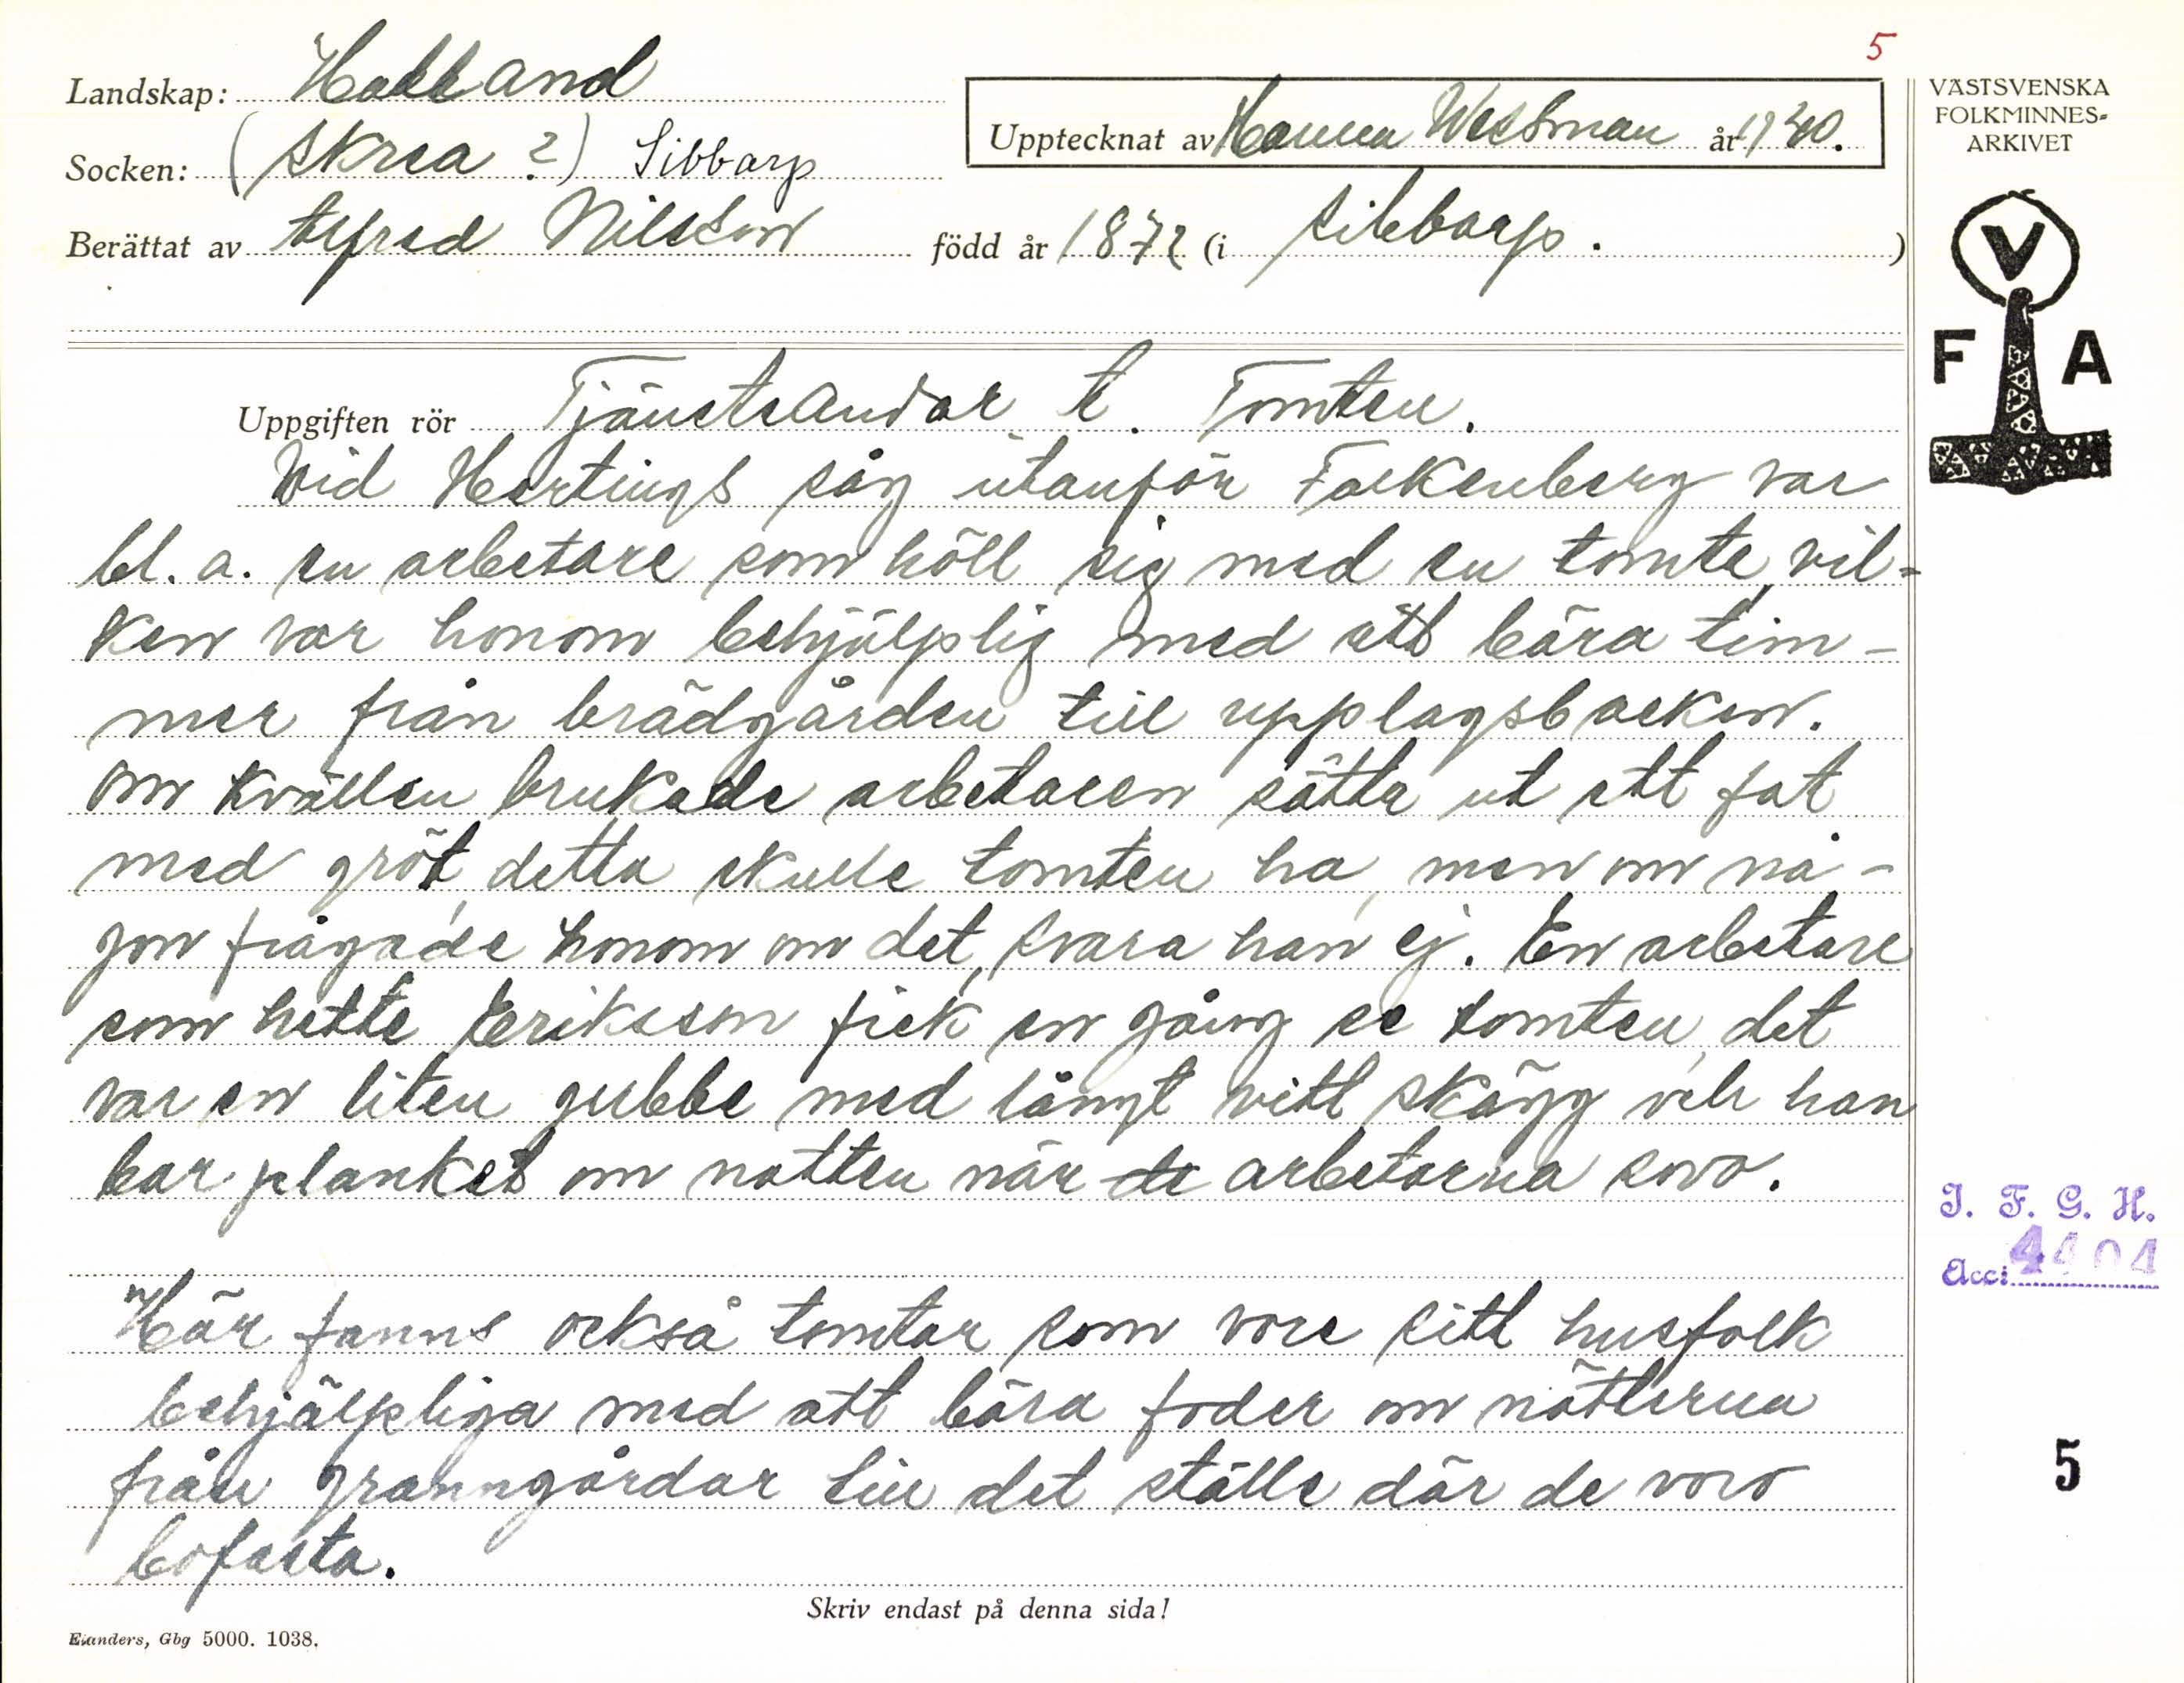 5
Landskap: Halland
Socken: (Skrea ?) Sibbarp
Upptecknat av Hanna Westman år 1940.
Berättat av Alfred Nilsson född år 1872 (i Sibbarp. )
VÄSTSVENSKA
FOLKMINNES-
ARKIVET
V
F A
Uppgiften rör Tjänsteandar t. Tomten.
Vid Hertings såg utanför Falkenberg var
bl. a. en arbetare som höll sig med en tomte, vil=
ken var honom behjälplig med att bära tim-
mer från brädgården till upplagsbacken.
Om kvällen brukade arbetaren sätta ut ett fat
med gröt, detta skulle tomten ha, men om nå-
gon frågade honom om det, svara han ej. En arbetare
som hette Eriksson fick en gång se tomten, det
var en liten gubbe med långt vitt skägg och han
bar planket om natten när de arbetarna sovo.
Här fanns också tomtar som vore sitt husfolk
behjälpliga med att bära foder om nätterna
från granngårdar till det ställe där de voro
bofasta.
Skriv endast på denna sida!
Elanders, Gbg 5000. 1038.
I. F. G. H.
Acc: 4404
5